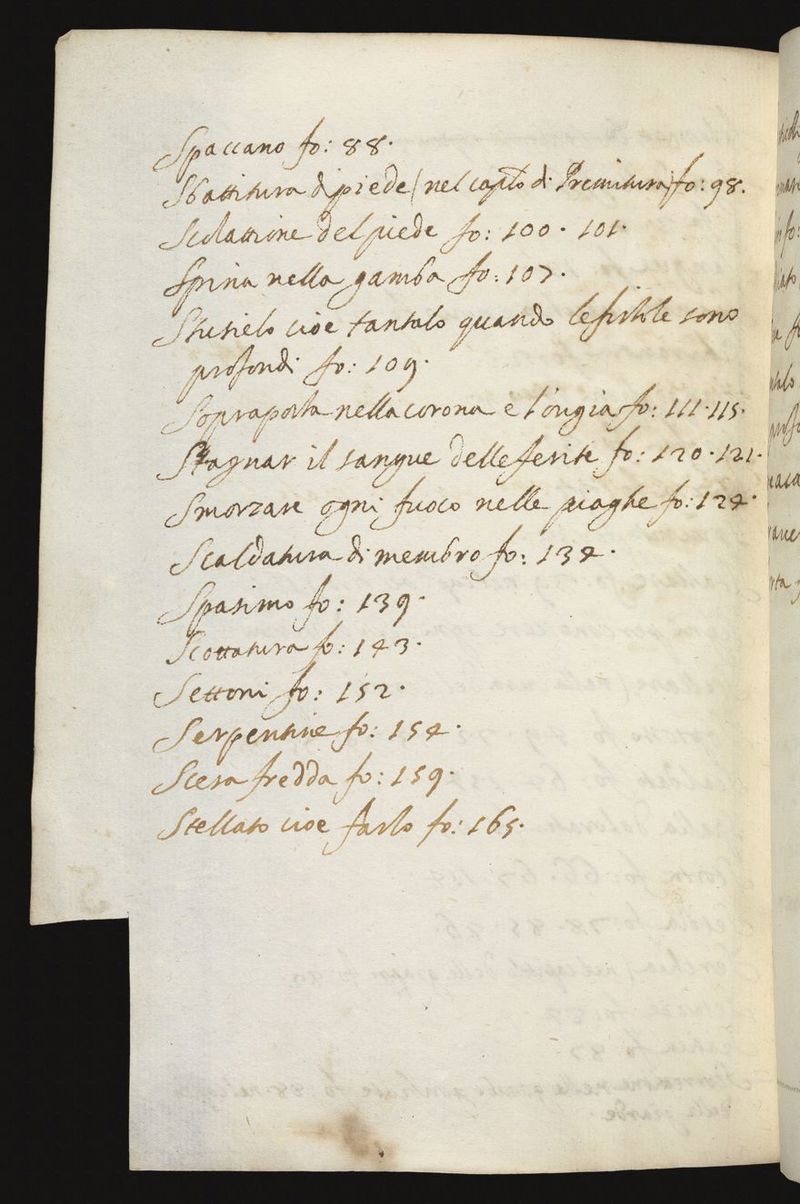 Spaccano fo: 88.
Sbattitura di piede (nel capto di Premitura) fo: 98.
Scolattione del piede fo: 100. 101.
Spina nella gamba fo: 107.
cioe tantalo quando le fistole sono
profondi fo: 109.
Sopraposta nella corona e l'ongia fo: 111. 115.
Stagnar il sangue delle ferite fo: 120. 121.
Smorzare ogni fuoco nelle piaghe fo: 124.
Scaldatura di membro fo: 134.
Spasimo fo: 139.
Scottatura fo: 143.
Settoni fo: 152.
Serpentine fo: 154.
Scesa fredda fo: 159.
Stellato cioe farlo fo: 165.